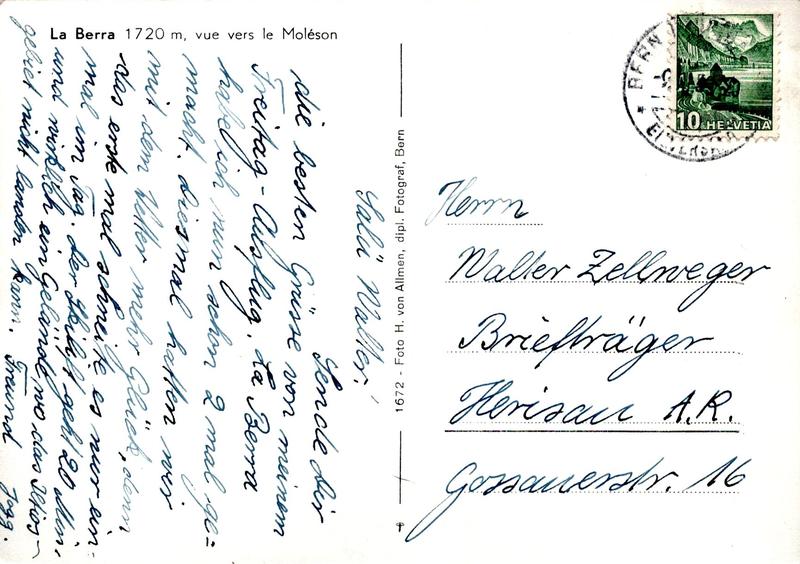 La Berra 1720 m, vue vers le Moléson
Salü Walter!
Sende dir
die besten Grüsse von meinem
Freitag-Ausflug. La Berra
habe ich nun schon 2 mal ge=
macht. diesmal hatten wir
mit dem Wetter mehr Glück, denn
das erste mal schneite es nur ein-
mal im Tag. Der Skilift geht 20 Min.
und wirklich ein Gelände wo das Skige-
gebiet nicht landen kann. Freund
1672 - Foto H. von Allmen, dipl. Fotograf, Bern
BERN
10 HELVETIA
Herrn
Walter Zellweger
Briefträger
Herisau A.R.
Gossauerstr. 16